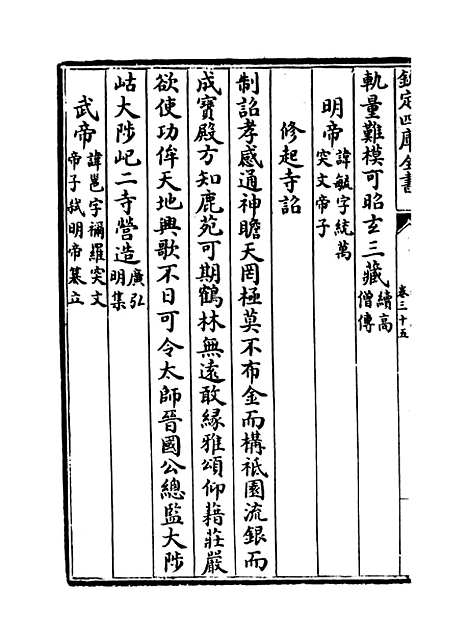 欽定四庫全書
卷三十五
軌量難模可昭玄三藏續高
僧傳
明帝諱毓字統萬
突文帝子
修起寺詔
制詔孝感通神瞻天罔極莫不布金而構祇園流銀而
成寶殿方知鹿苑可期鶴林無遠敢緣雅頌仰藉莊嚴
欲使功侔天地興歌不日可令太師晉國公總監大陟
岵大陟屺二寺營造廣弘
明集
武帝諱邕字禰羅突文
帝子弒明帝纂立